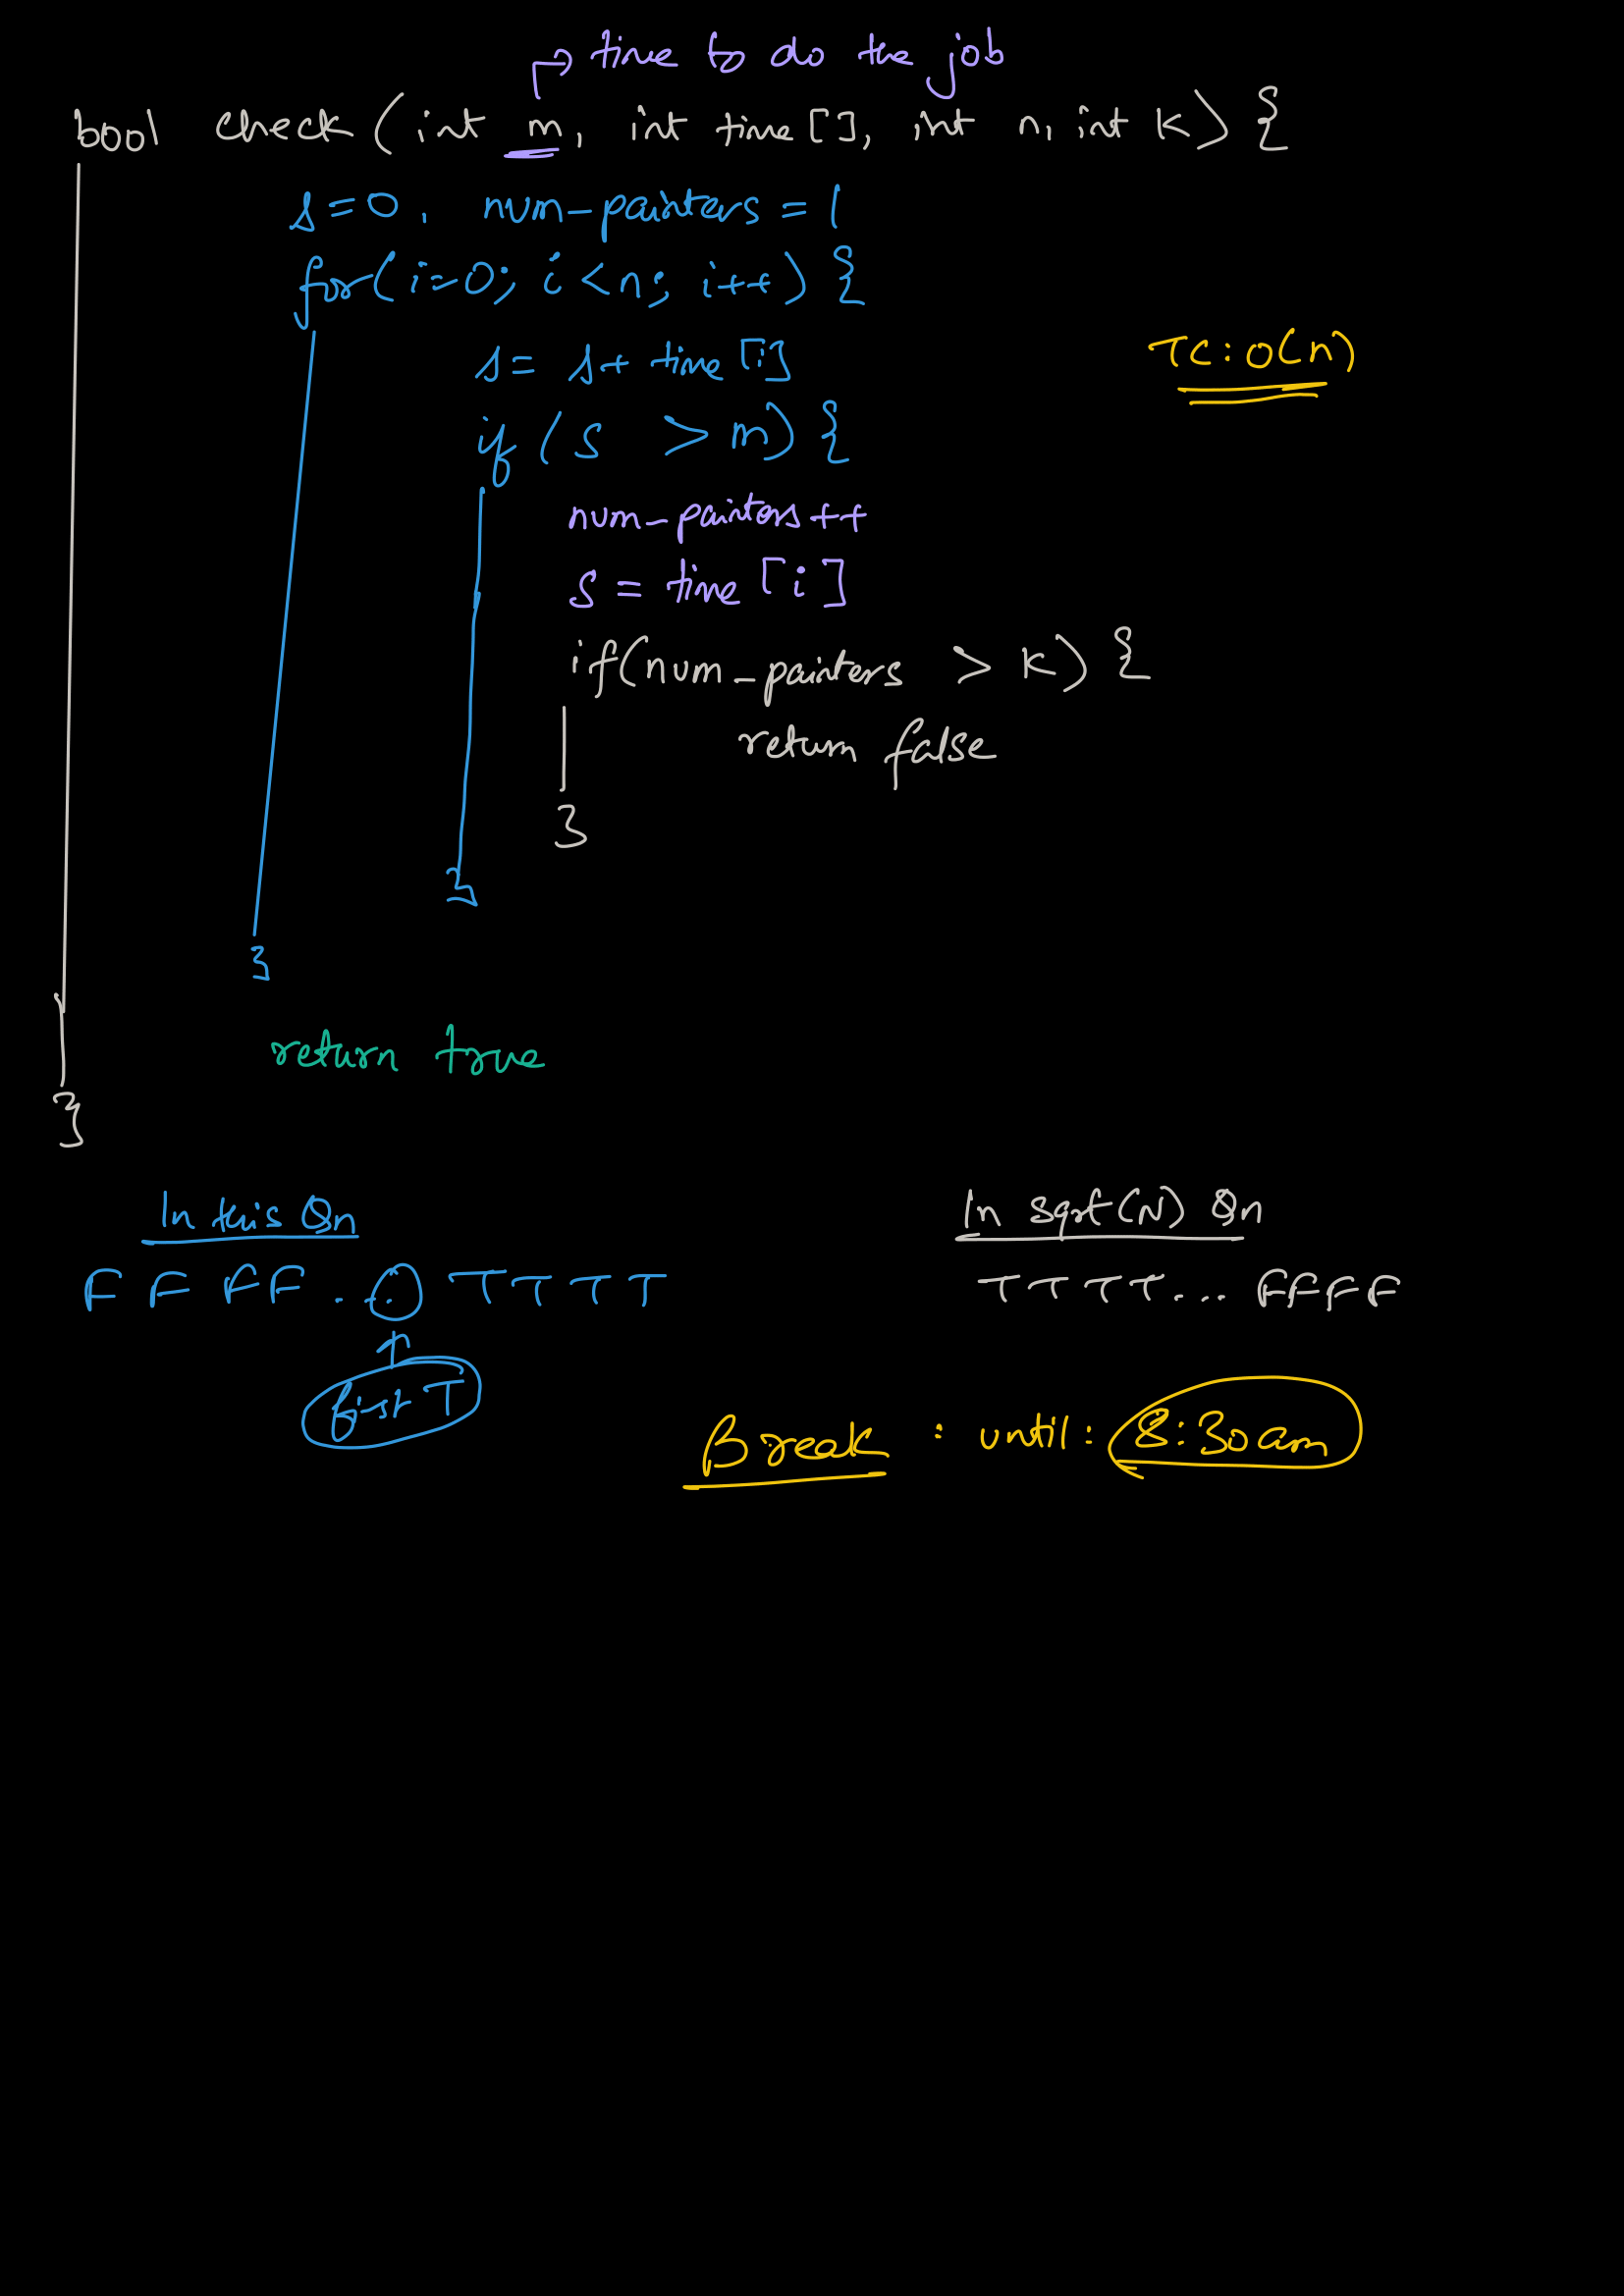 time to do the job
bool check (int m, int time [], int n, int k) {
s=0, num-painters = 1
for(i=0; i<n; i++) {
s= s+ time [i]
TC: O(n)
if (s > m) {
num-painters ++
s = time [i]
if(num-painters > k) {
return false
}
}
}
return true
}
In this Qn
In sqrt(N) Qn
F F F F . . . T T T T
T T T T ... F F F F
first T
Break : until : 8:30 am